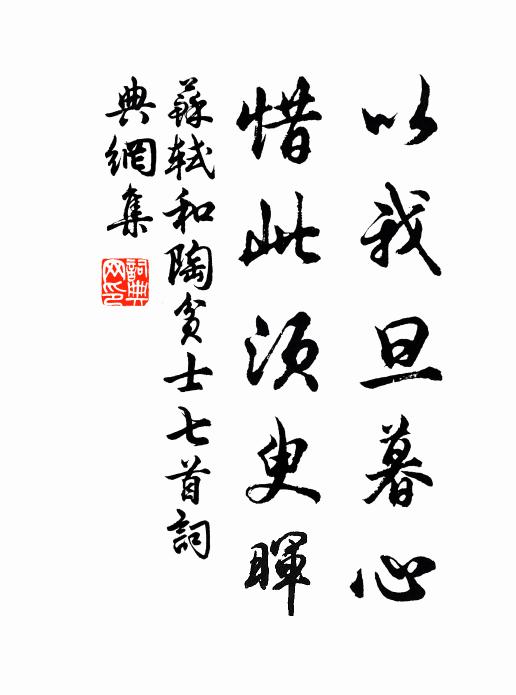 以我旦暮心
惜此須臾暉
蘇軾和陶貧士七首詞
典網集
詞典
网印